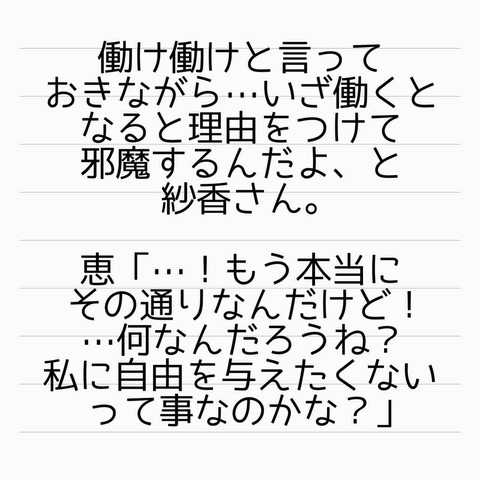 働け働けと言って
おきながら…いざ働くと
なると理由をつけて
邪魔するんだよ、と
紗香さん。
恵「…！もう本当に
その通りなんだけど！
…何なんだろうね？
私に自由を与えたくない
って事なのかな？」